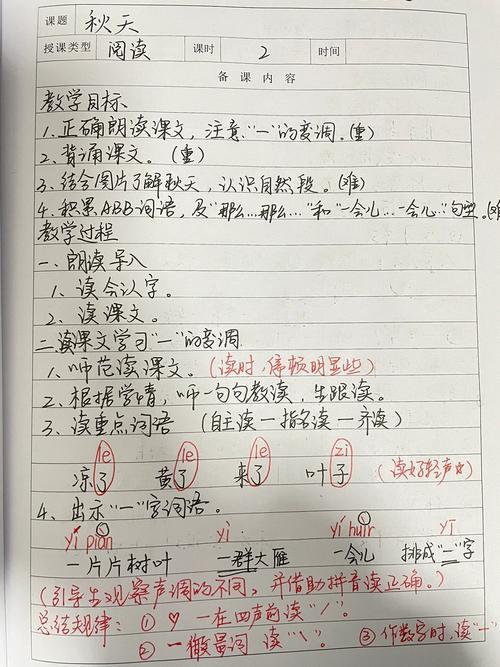 课题 秋天
授课类型 阅读 课时 2 时间
备课内容
教学目标
1.正确朗读课文，注意“一”的变调。(重)
2.背诵课文。(重)
3.结合图片了解秋天，认识自然段。(难)
4.积累ABB词语，及“那么…那么…”和“一会儿…一会儿”句型。(难
教学过程
一、朗读导入
1、读会认字。
2、读课文。
二、读课文学习“一”的变调
1、师范读课文。(读时，停顿明显些)
2、根据学情，师一句句教读，生跟读。
3、读重点词语 (自主读—指名读—齐读)
le le le zi
凉了 黄了 来了 叶子 (读好轻声☆)
4、出示“一”字词语。
yí piàn yì yí huìr yī
一片片树叶 一群大雁 一会儿 排成“一”字
(引导生观察声调的不同，并借助拼音读正确。)
总结规律：① ♡ 一在四声前读“ˊ”。
② 一做量词 读“ˋ”。 ③ 作数字时，读“一”